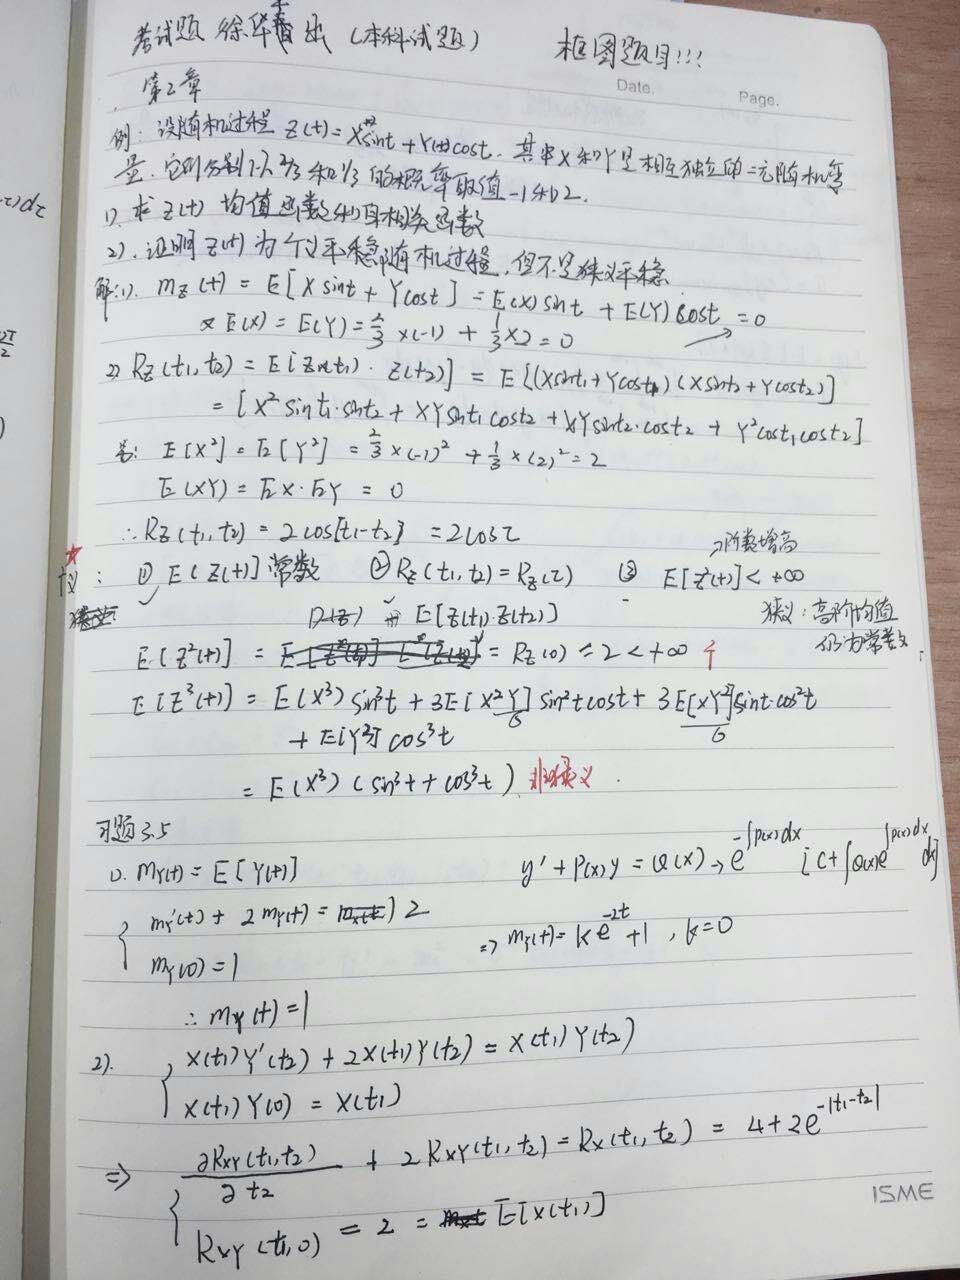 考试题 徐华 出 (本科试题) 框图题目!!!
Date. Page.
第2章
例: 设随机过程 Z(t)=X sint + Y cost. 其中X和Y是相互独立的二元随机变
量, 它们分别以 2/3 和 1/3 的概率取值 -1和2.
1). 求 Z(t) 均值函数和自相关函数
2). 证明 Z(t) 为广义平稳随机过程, 但不是狭义平稳
解:1). mZ(t) = E[X sint + Ycost] = E(X) sint + E(Y) cost = 0
又 E(X) = E(Y) = 2/3 ×(-1) + 1/3 ×2 = 0
2) RZ(t1,t2) = E[Z(t1)·Z(t2)] = E[(Xsint1+Ycost1)(Xsint2+Ycost2)]
= [X² sint1·sint2 + XYsint1cost2 + XYsint2·cost2 + Y²cost1cost2]
E[X²] = E[Y²] = 2/3 ×(-1)² + 1/3 ×(2)² = 2
E(XY) = EX·EY = 0
∴ RZ(t1,t2) = 2cos[t1-t2] = 2cosτ
→阶数增高
广义: ① E[Z(t)] 常数 ② RZ(t1,t2)=RZ(τ) ③ E[Z²(t)]<+∞
E[Z(t1)·Z(t2)] 狭义: 高阶均值
仍为常数
E[Z²(t)] = = RZ(0) = 2 < +∞
E[Z³(t)] = E(X³) sin³t + 3E[X²Y] sin²t cost + 3E[XY²] sint·cos²t
+ E[Y³] cos³t
= E(X³) (sin³t + cos³t) 非狭义.
习题3.5
1). mY(t) = E[Y(t)] y' + P(x)y = Q(x) → e^{-∫P(x)dx} [C+∫Q(x)e^{∫P(x)dx} dx]
mY'(t) + 2mY(t) = 2
⇒ mY(t) = ke^{-2t}+1, k=0
mY(0) = 1
∴ mY(t) = 1
2). X(t1)Y'(t2) + 2X(t1)Y(t2) = X(t1)Y(t2)
X(t1)Y(0) = X(t1)
⇒ ∂RXY(t1,t2)/∂t2 + 2RXY(t1,t2) = RX(t1,t2) = 4+2e^{-|t1-t2|}
RXY(t1,0) = 2 = E[X(t1)]
ISME